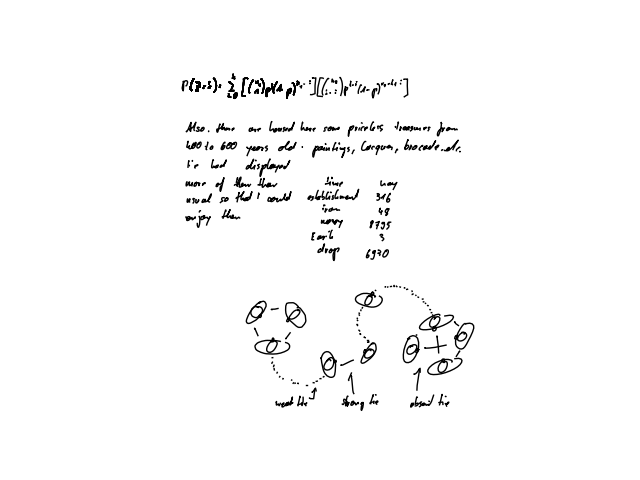 P(Z=z) = \sum_{i=0}^{k} [\binom{n_1}{i} p^i (1-p)^{n_1-i}] [\binom{n_2}{z-i} p^{z-i} (1-p)^{n_2-z+i}]
Also, there are housed here some priceless treasures from
400 to 600 years old - paintings, lacquer, brocade, etc.
I've had displayed
more of them than
usual so that I could
enjoy them
time way
establishment 316
iron 48
navy 8795
Earth 3
drop 6970
weak tie strong tie absent tie